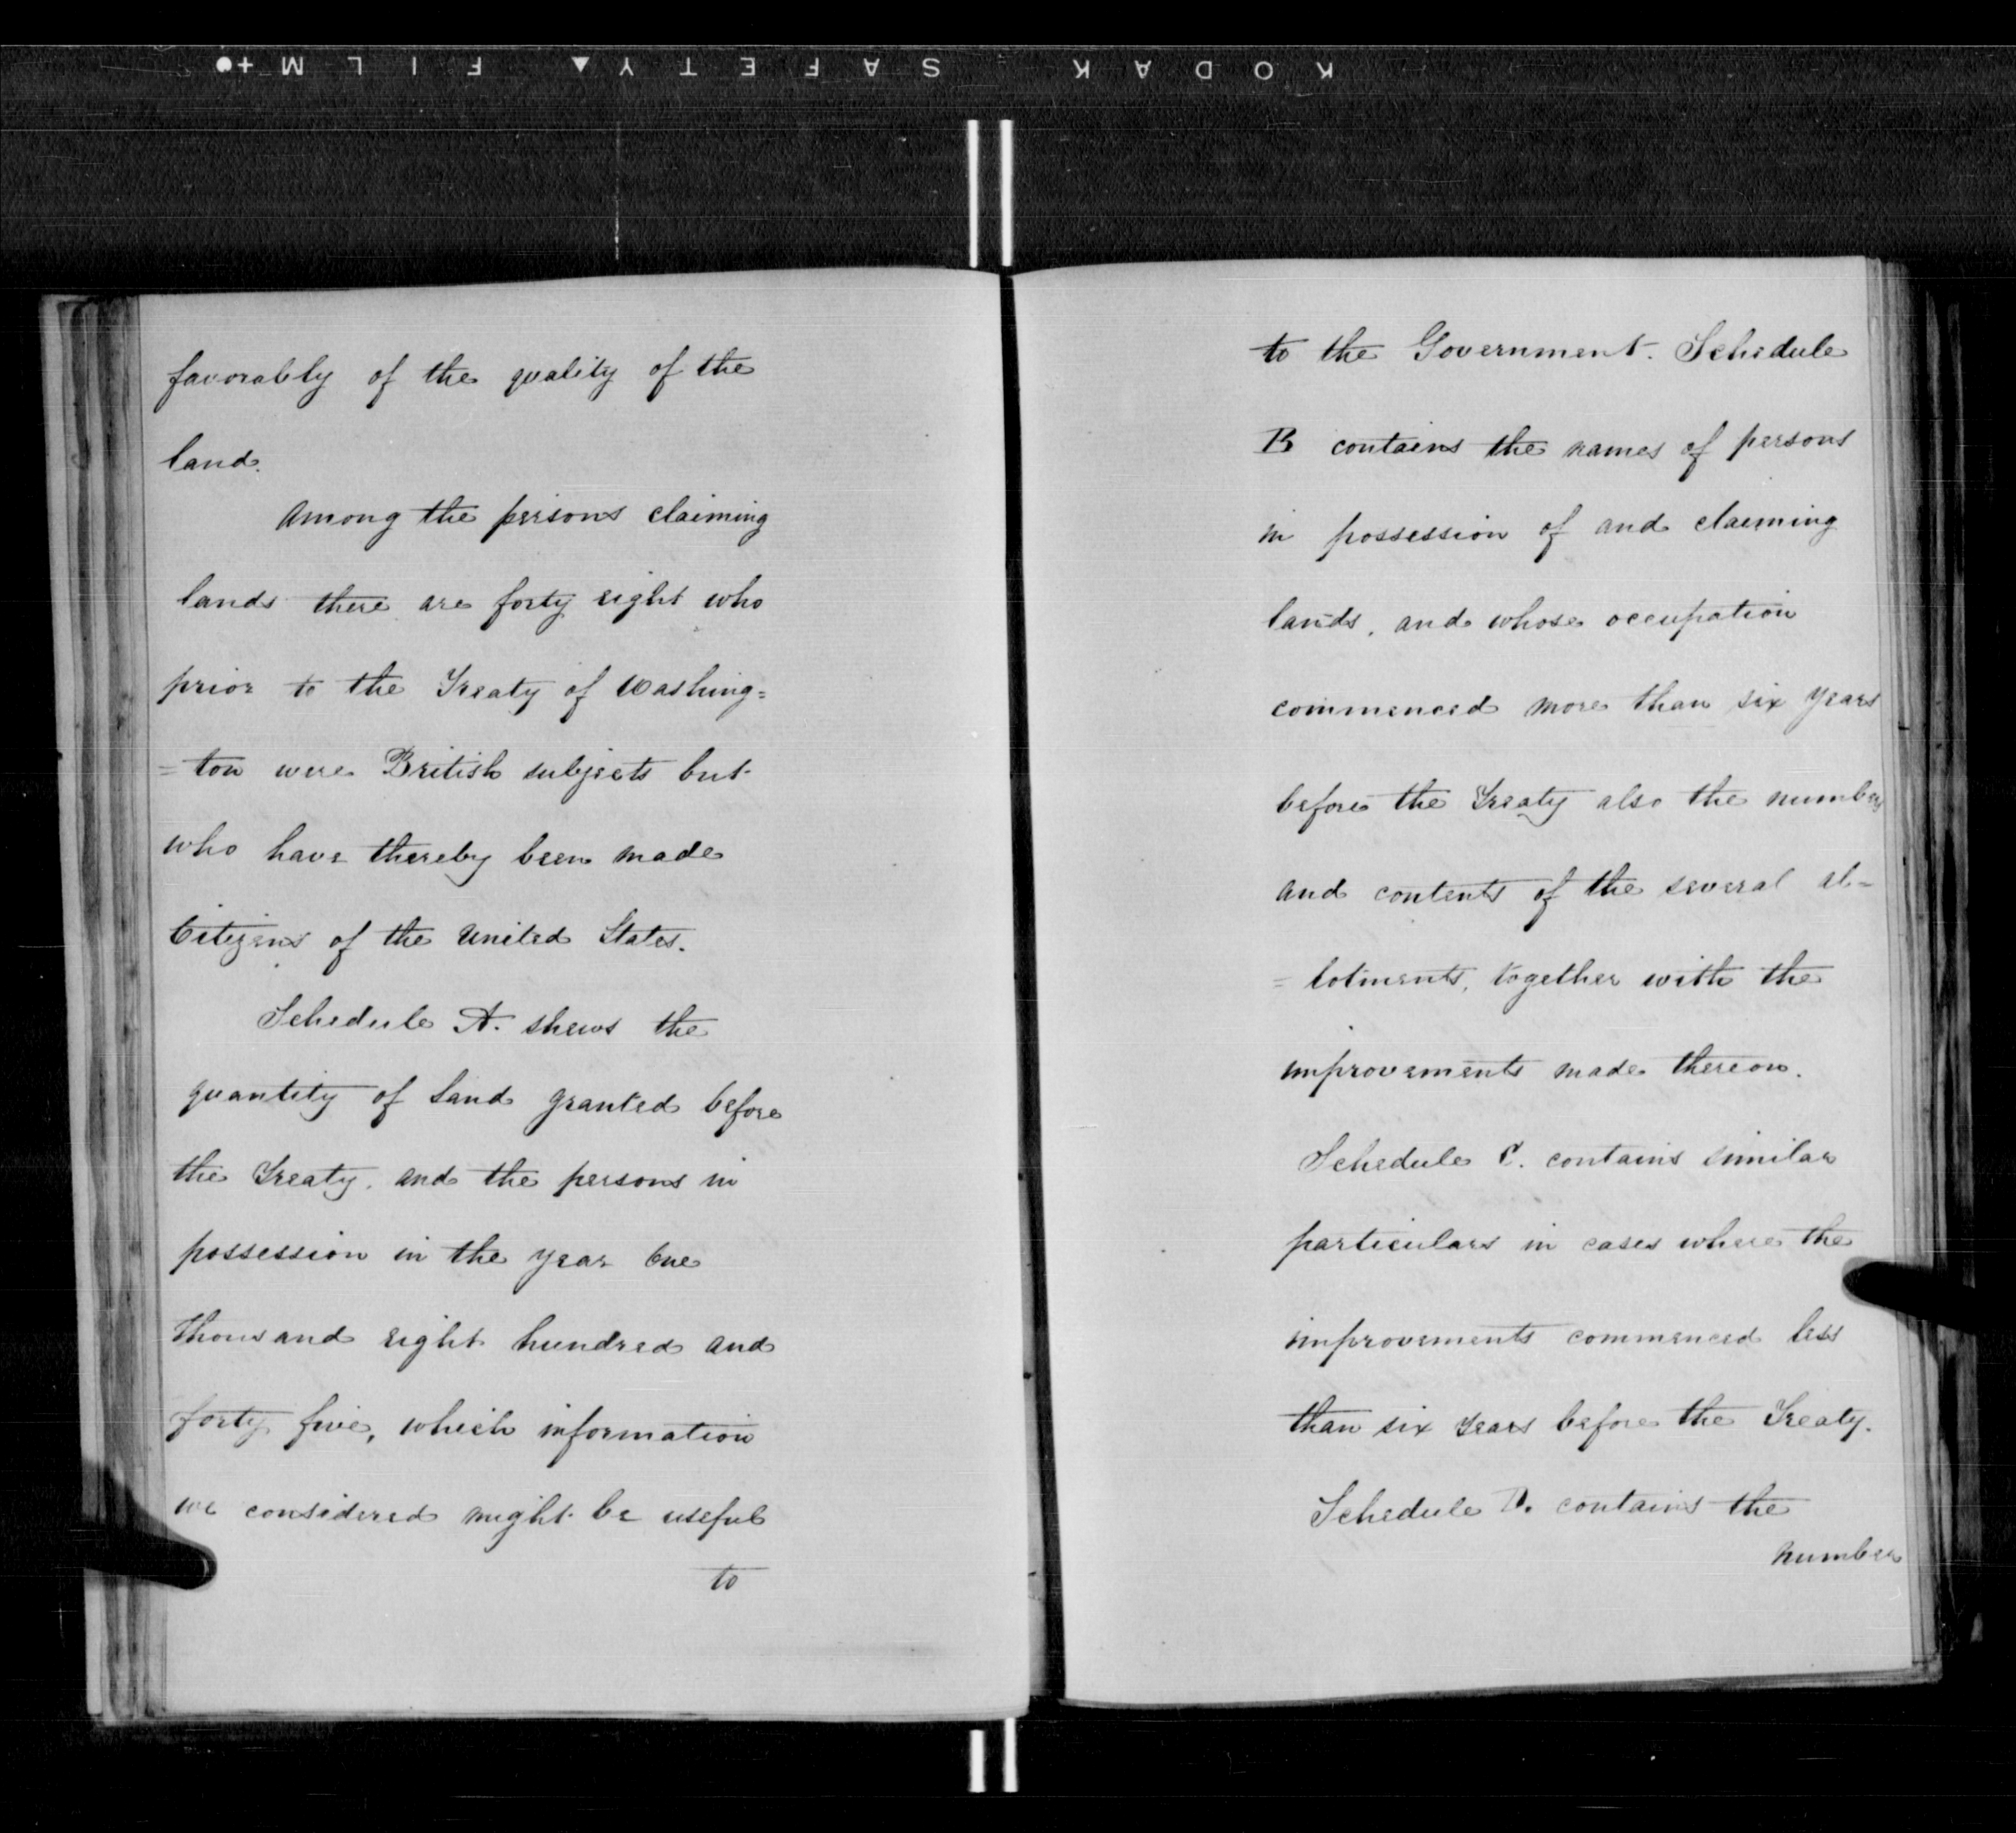 KODAK SAFETY FILM
favorably of the quality of the
land.
Among the persons claiming
lands there are forty eight who
prior to the Treaty of Washing=
=ton were British subjects but
who have thereby been made
Citizens of the United States.
Schedule A. shews the
quantity of land granted before
the Treaty, and the persons in
possession in the year One
thousand eight hundred and
forty five, which information
we considered might be useful
to
to the Government. Schedule
B contains the names of persons
in possession of and claiming
lands, and whose occupation
commenced more than six years
before the Treaty also the number
and contents of the several al=
=lotments, together with the
improvements made thereon.
Schedule C. contains similar
particulars in cases where the
improvements commenced less
than six years before the Treaty.
Schedule D. contains the
number